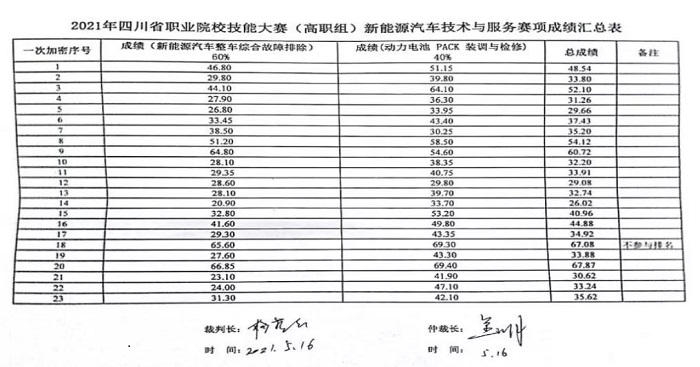 2021年四川省职业院校技能大赛（高职组）新能源汽车技术与服务赛项成绩汇总表
一次加密序号 成绩（新能源汽车整车综合故障排除）60% 成绩(动力电池 PACK 装调与检修)40% 总成绩 备注
1 46.80 51.15 48.54
2 29.80 39.80 33.80
3 44.10 64.10 52.10
4 27.90 36.30 31.26
5 26.80 33.95 29.66
6 33.45 43.40 37.43
7 38.50 30.25 35.20
8 51.20 58.50 54.12
9 64.80 54.60 60.72
10 28.10 38.35 32.20
11 29.35 40.75 33.91
12 28.60 29.80 29.08
13 28.10 39.70 32.74
14 20.90 33.70 26.02
15 32.80 53.20 40.96
16 41.60 49.80 44.88
17 29.30 43.35 34.92
18 65.60 69.30 67.08 不参与排名
19 27.60 43.30 33.88
20 66.85 69.40 67.87
21 23.10 41.90 30.62
22 24.00 47.10 33.24
23 31.30 42.10 35.62
裁判长： 仲裁长：
时 间：2021.5.16 时 间： 5.16